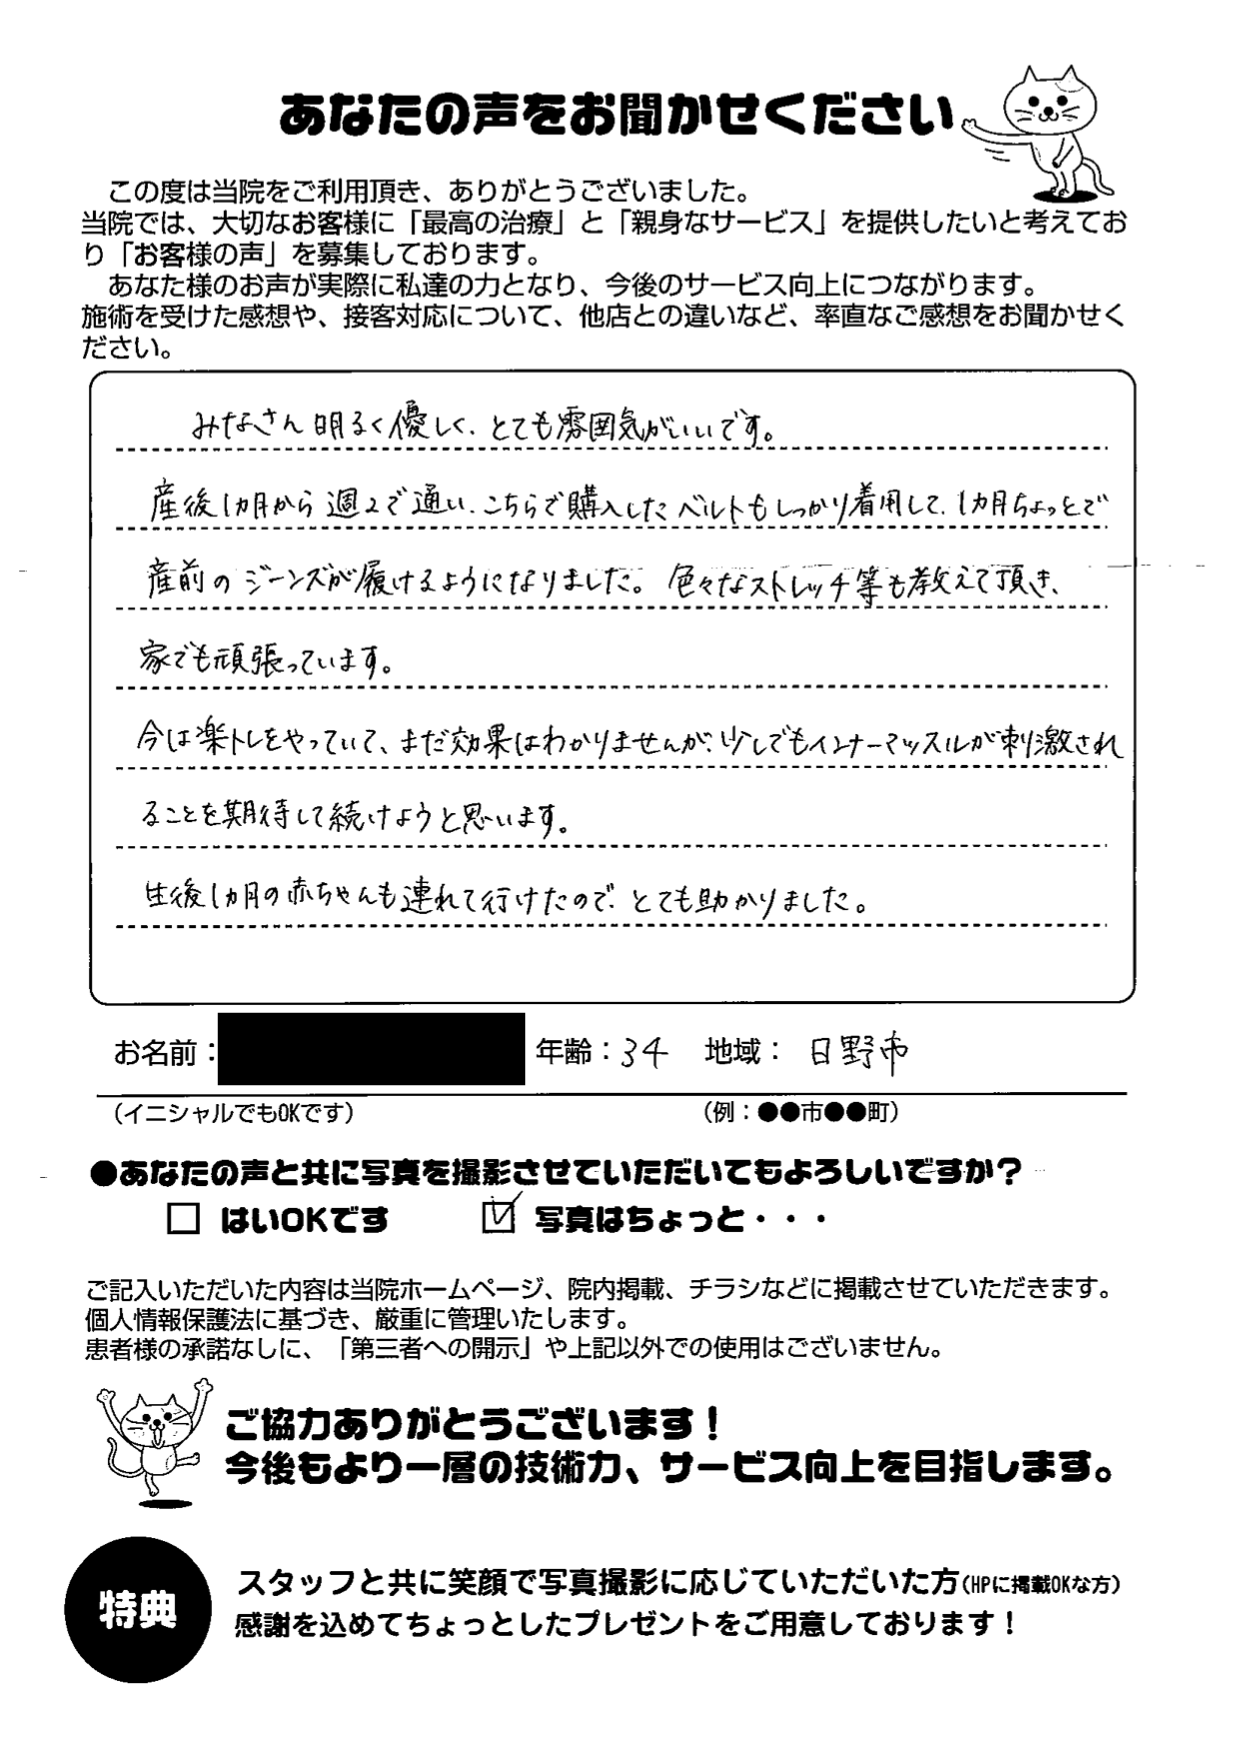 あなたの声をお聞かせください
この度は当院をご利用頂き、ありがとうございました。
当院では、大切なお客様に「最高の治療」と「親身なサービス」を提供したいと考えてお
り「お客様の声」を募集しております。
あなた様のお声が実際に私達の力となり、今後のサービス向上につながります。
施術を受けた感想や、接客対応について、他店との違いなど、率直なご感想をお聞かせく
ださい。
みなさん明るく優しく、とても雰囲気がいいです。
産後1カ月から週2で通い、こちらで購入したベルトもしっかり着用して、1カ月ちょっとで
産前のジーンズが履けるようになりました。色々なストレッチ等も教えて頂き、
家でも頑張っています。
今は楽トレをやっていて、まだ効果はわかりませんが、少しでもインナーマッスルが刺激され
ることを期待して続けようと思います。
生後1カ月の赤ちゃんも連れて行けたので、とても助かりました。
お名前： 年齢：34 地域： 日野市
（イニシャルでもOKです） （例：●●市●●町）
●あなたの声と共に写真を撮影させていただいてもよろしいですか？
□ はいOKです ☑ 写真はちょっと・・・
ご記入いただいた内容は当院ホームページ、院内掲載、チラシなどに掲載させていただきます。
個人情報保護法に基づき、厳重に管理いたします。
患者様の承諾なしに、「第三者への開示」や上記以外での使用はございません。
ご協力ありがとうございます！
今後もより一層の技術力、サービス向上を目指します。
特典
スタッフと共に笑顔で写真撮影に応じていただいた方(HPに掲載OKな方)
感謝を込めてちょっとしたプレゼントをご用意しております！